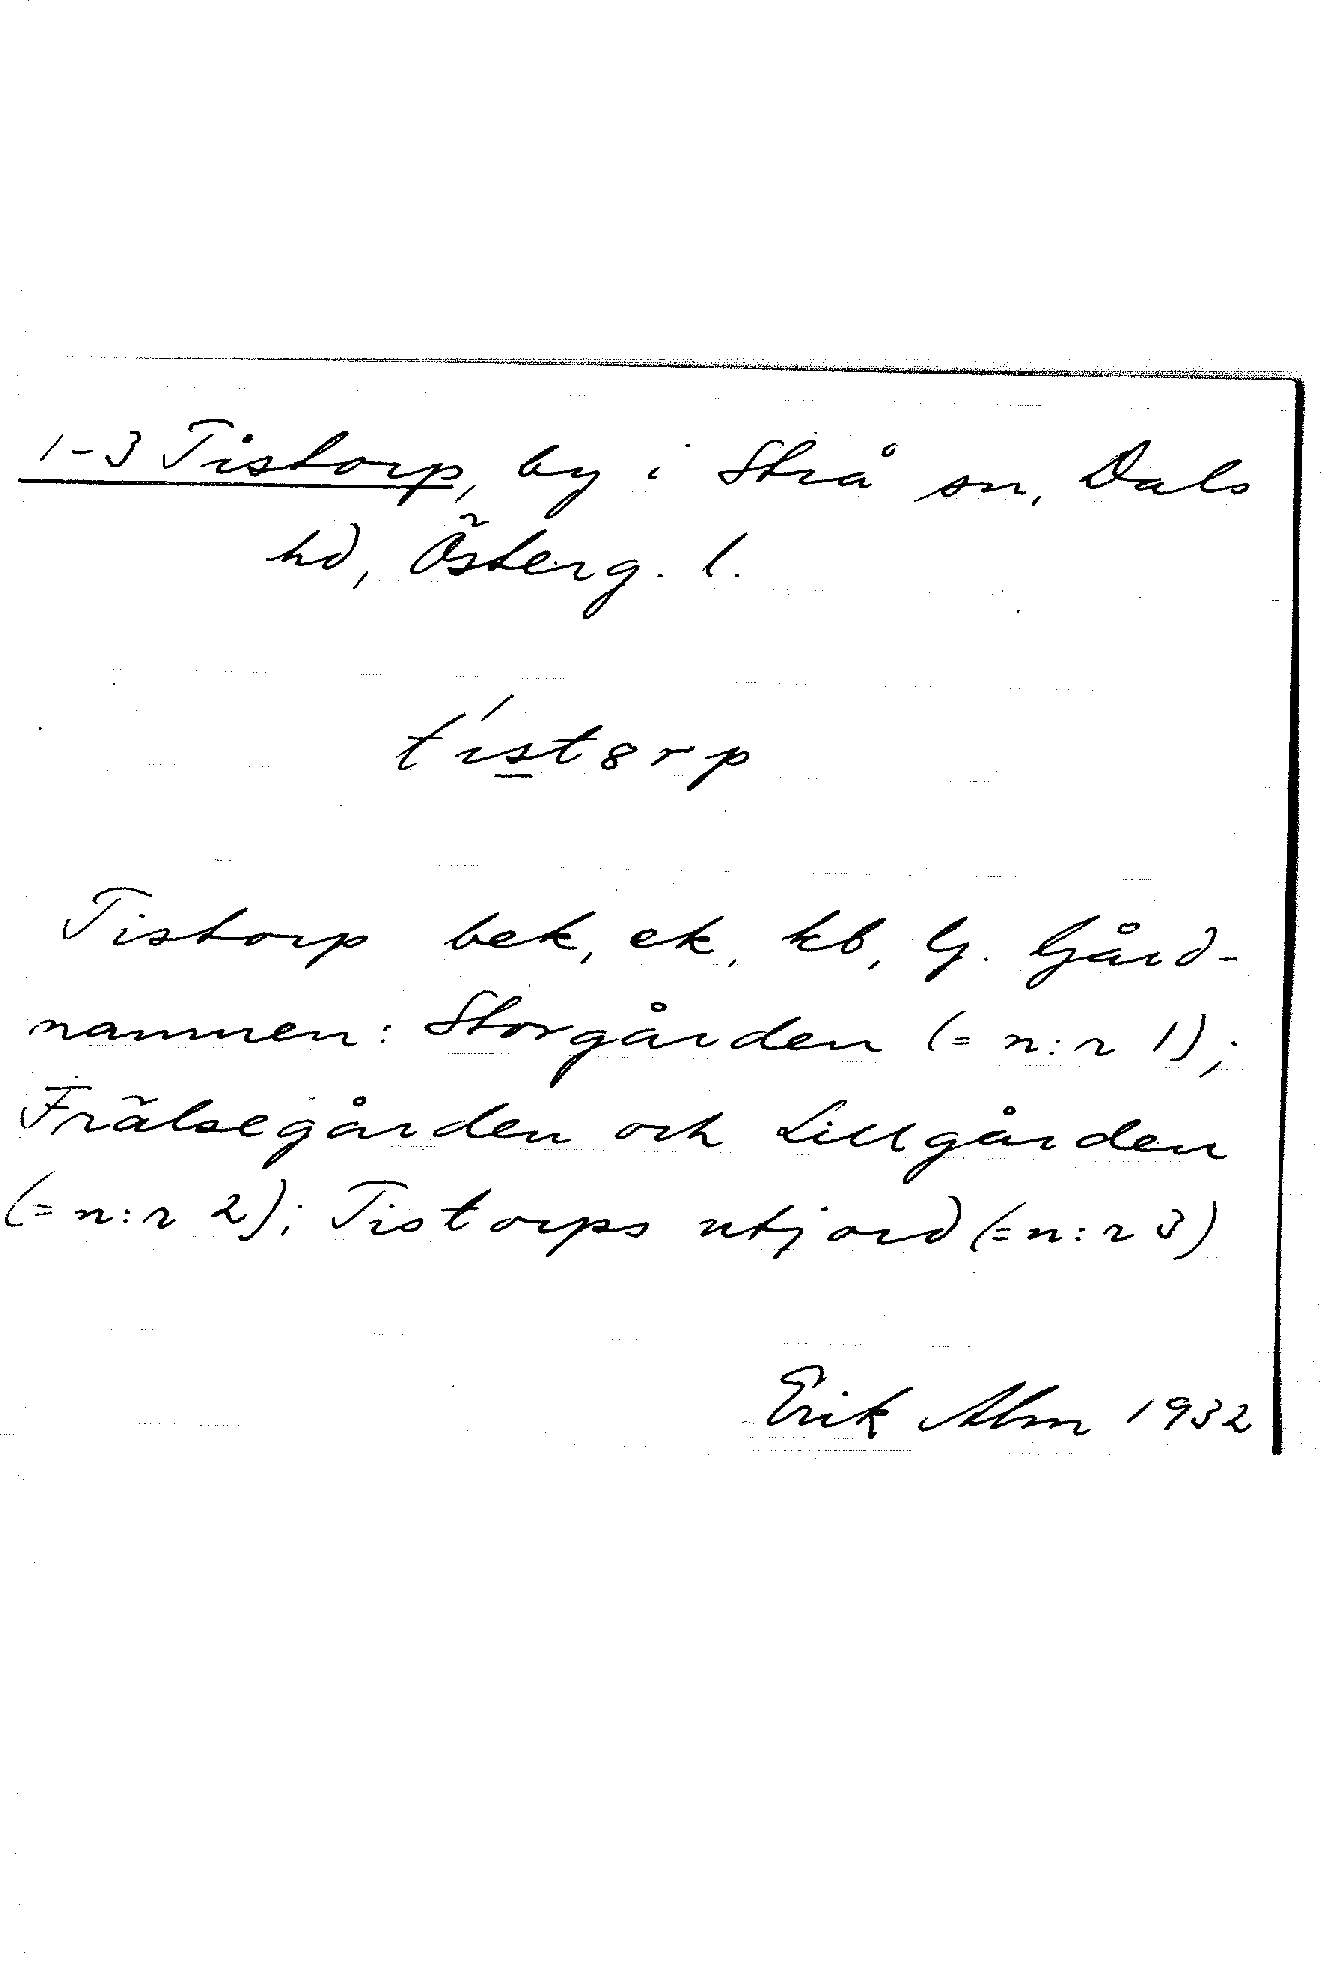 1-3 Tistorp, by i Strå sn, Dals
hd, Österg. l.
tístȣrp
Tistorp bek, ek, kb, G. Gård-
namnen: Storgården (= n:r 1);
Frälsegården och Lillgården
(= n:r 2); Tistorps utjord (= n:r 3)
Erik Alm 1932